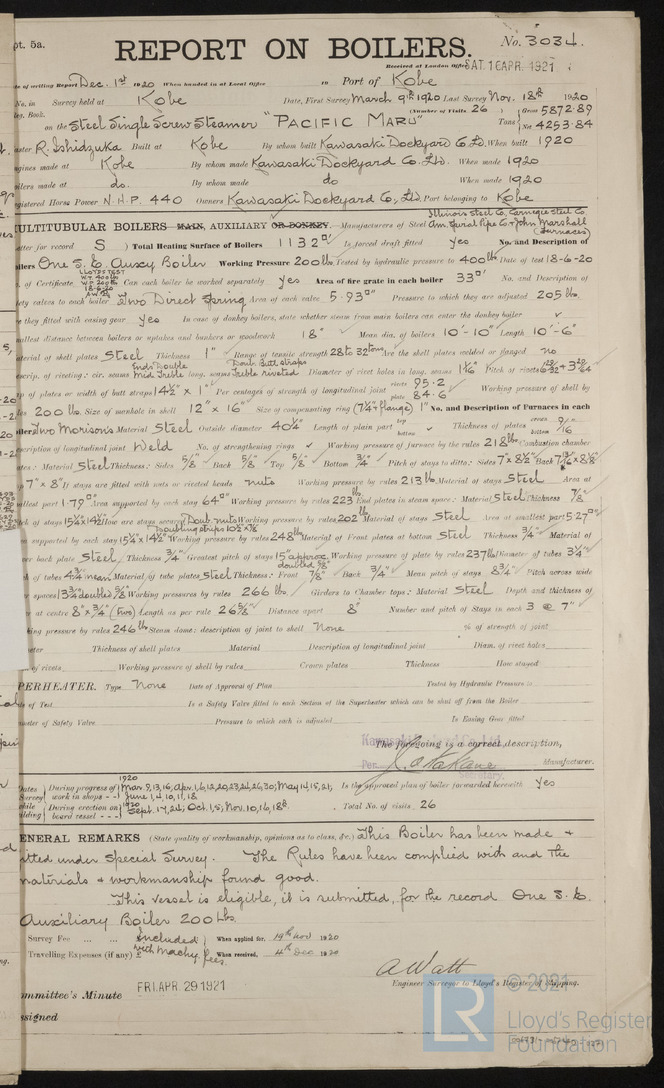 pt. 5a.
REPORT ON BOILERS.
No. 3034
Received at London Office SAT. 16 APR. 1921
te of writing Report Dec. 1st 1920 When handed in at Local Office Port of Kobe
No. in Survey held at Kobe Date, First Survey March 9th 1920 Last Survey Nov. 18th 1920
eg. Book. (Number of Visits 26
on the Steel Single Screw Steamer "PACIFIC MARU" Tons Gross 5872.89
Net 4253.84
ster R. Ishidzuka Built at Kobe By whom built Kawasaki Dockyard Co. Ld. When built 1920
ngines made at Kobe By whom made Kawasaki Dockyard Co. Ltd. When made 1920
oilers made at do. By whom made do When made 1920
gistered Horse Power N.H.P. 440 Owners Kawasaki Dockyard Co., Ld. Port belonging to Kobe
ULTITUBULAR BOILERS MAIN, AUXILIARY OR DONKEY. Manufacturers of Steel Illinois Steel Co, Carnegie Steel Co.
Am. Spiral Pipe Co & John Marshall
(Furnaces)
tter for record S ) Total Heating Surface of Boilers 1132□' Is forced draft fitted yes No. and Description of
oilers One S.E. Auxy Boiler Working Pressure 200 lbs Tested by hydraulic pressure to 400 lbs Date of test 18-6-20
LLOYDS TEST
W.T. 400 lbs
W.P. 200 lbs
18-6-20
A.W.
. of Certificate Can each boiler be worked separately yes Area of fire grate in each boiler 33□' No. and Description of
ety valves to each boiler Two Direct Spring Area of each valve 5.93□" Pressure to which they are adjusted 205 lbs.
e they fitted with easing gear yes In case of donkey boilers, state whether steam from main boilers can enter the donkey boiler ✓
allest distance between boilers or uptakes and bunkers or woodwork 18" Mean dia. of boilers 10'-10" Length 10'-6"
aterial of shell plates Steel Thickness 1" Range of tensile strength 28 to 32 tons Are the shell plates welded or flanged no
escrip. of riveting: cir. seams Ends Double Mid Treble long. seams Doub. Butt straps Treble riveted Diameter of rivet holes in long. seams 1 1/16" Pitch of rivets
p of plates or width of butt straps 14 1/2" x 1" Per centages of strength of longitudinal joint rivets 95.2 plate 84.6 Working pressure of shell by
les 200 lbs. Size of manhole in shell 12" x 16" Size of compensating ring (7 1/4" + flange) 1" No. and Description of Furnaces in each
oiler Two Morisons Material Steel Outside diameter 40 1/4" Length of plain part top bottom ✓ Thickness of plates crown bottom 9/16"
escription of longitudinal joint Weld No. of strengthening rings ✓ Working pressure of furnace by the rules 218 lbs Combustion chamber
ates: Material Steel Thickness: Sides 5/8" Back 5/8" Top 5/8" Bottom 3/4" Pitch of stays to ditto: Sides 7" x 8 1/2" Back
p 7" x 8" If stays are fitted with nuts or riveted heads nuts Working pressure by rules 213 lb. Material of stays Steel Area at
allest part 1.79□" Area supported by each stay 64□" Working pressure by rules 223 End plates in steam space: Material Steel Thickness 7/8"
ch of stays How are stays secured Doub. nuts Working pressure by rules 202 lb Material of stays Steel Area at smallest part 5.27□"
supported by each stay Working pressure by rules 248 lb Material of Front plates at bottom Steel Thickness 3/4" Material of
er back plate Steel Thickness 3/4" Greatest pitch of stays 15" approx. doubled 5/8" Working pressure of plate by rules 237 lb Diameter of tubes 3 1/4"
h of tubes 4 3/4" mean Material of tube plates Steel Thickness: Front 7/8" Back 3/4" Mean pitch of stays 8 3/4" Pitch across wide
er spaces 13 3/4" doubled 5/8" Working pressures by rules 266 lbs. Girders to Chamber tops: Material Steel Depth and thickness of
er at centre 8" x 3/4" (Two) Length as per rule 26 5/8" Distance apart 8" Number and pitch of Stays in each 3 @ 7"
king pressure by rules 246 lb Steam dome: description of joint to shell None % of strength of joint
meter Thickness of shell plates Material Description of longitudinal joint Diam. of rivet holes
of rivets Working pressure of shell by rules Crown plates Thickness How stayed
PERHEATER. Type None Date of Approval of Plan Tested by Hydraulic Pressure to
te of Test Is a Safety Valve fitted to each Section of the Superheater which can be shut off from the Boiler
meter of Safety Valve Pressure to which each is adjusted Is Easing Gear fitted
The foregoing is a correct description,
Manufacturer.
Secretary.
Dates During progress of work in shops - - 1920 Mar. 9, 13, 16, Apr. 1, 6, 12, 20, 23, 24, 26, 30; May 14, 15, 21; June 1, 4, 10, 11, 18. Is the approved plan of boiler forwarded herewith yes
Survey while building During erection on board vessel - - - 1920 Sept. 17, 24; Oct. 1, 5; Nov. 10, 16, 18th. Total No. of visits 26
ENERAL REMARKS (State quality of workmanship, opinions as to class, &c.) This Boiler has been made &
itted under Special Survey. The Rules have been complied with and the
materials & workmanship found good.
This vessel is eligible, it is submitted, for the record. One S.E.
Auxiliary Boiler 200 Lbs.
Survey Fee ... ... Included When applied for, 19th Nov 1920
Travelling Expenses (if any) £ with Machy. fees. When received, 4th Dec 1920
A Watt
Engineer Surveyor to Lloyd's Register of Shipping.
ommittee's Minute FRI. APR. 29 1921
ssigned
LR © 2021
Lloyd's Register
Foundation